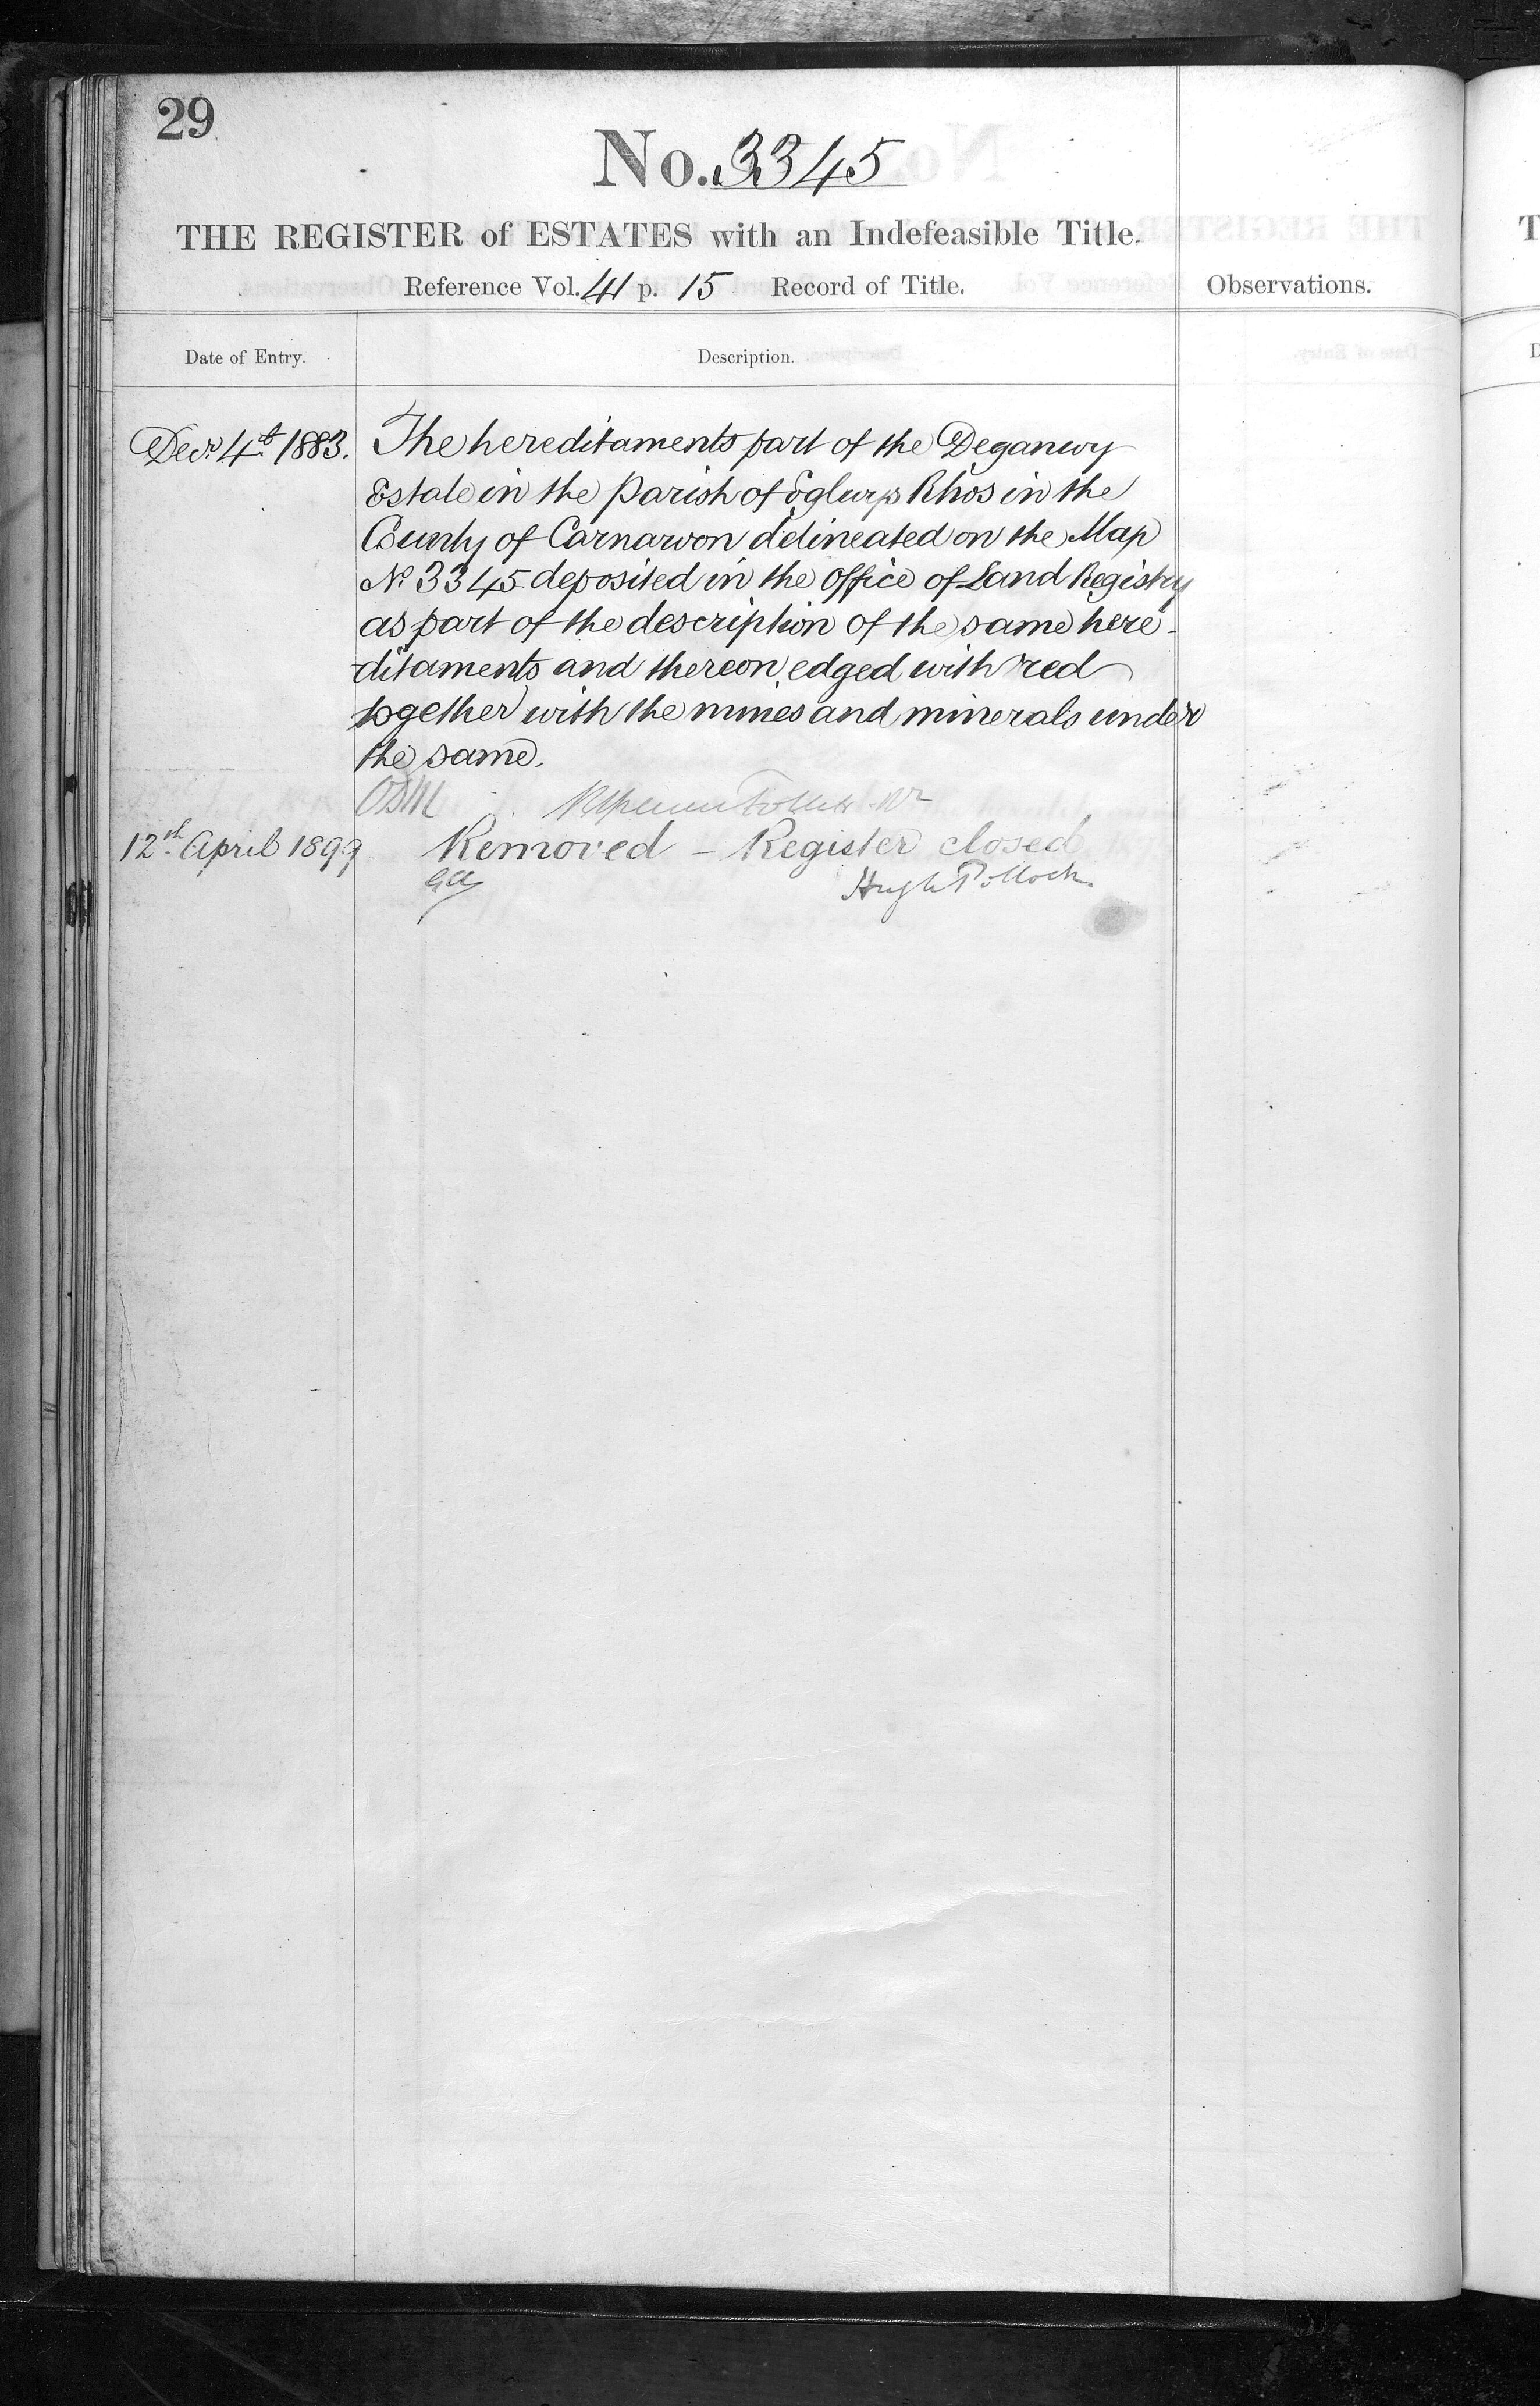 29
No. 3345
THE REGISTER of ESTATES with an Indefeasible Title.
Reference Vol. 41 p. 15 Record of Title.
Observations.
Date of Entry.
Description.
Decr. 4th 1883.
The hereditaments part of the Deganwy
Estate in the Parish of Eglwys Rhos in the
County of Carnarvon delineated on the Map
No 3345 deposited in the office of Land Registry
as part of the description of the same here-
ditaments and thereon edged with red
together with the mines and minerals under
the same.
12th April 1899
Removed - Register closed
Hugh Pollock.